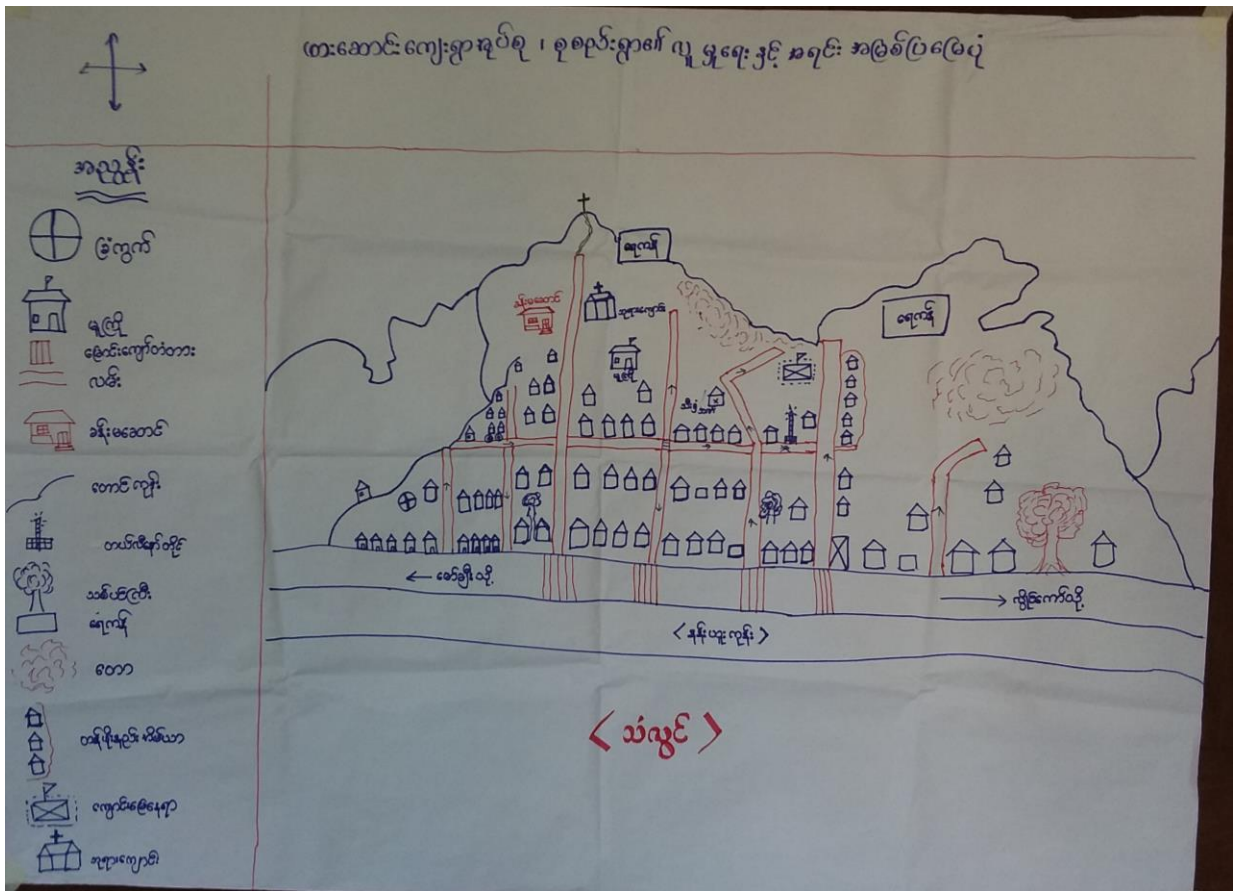 ထားဆောင်းကျေးရွာအုပ်စု ၊ စုစည်းရွာ၏ လူမှုရေးနှင့် အရင်းအမြစ်ပြမြေပုံ
အညွှန်း
ခြံကွက်
မူကြို
မြောင်းကျော်တံတား
လမ်း
ခန်းမဆောင်
တောင်ကုန်း
တယ်လီနော်တိုင်
သစ်ပင်ကြီး
ရေကန်
တော
တန်ဖိုးနည်းအိမ်ယာ
ကျောင်းမြေနေရာ
ဘုရားကျောင်း
ရေကန်
ရေကန်
ခန်းမဆောင်
ဘုရားကျောင်း
မူကြို
← ဖော်ချီးသို့
→ လွိုင်ကော်သို့
< သံလွင် >